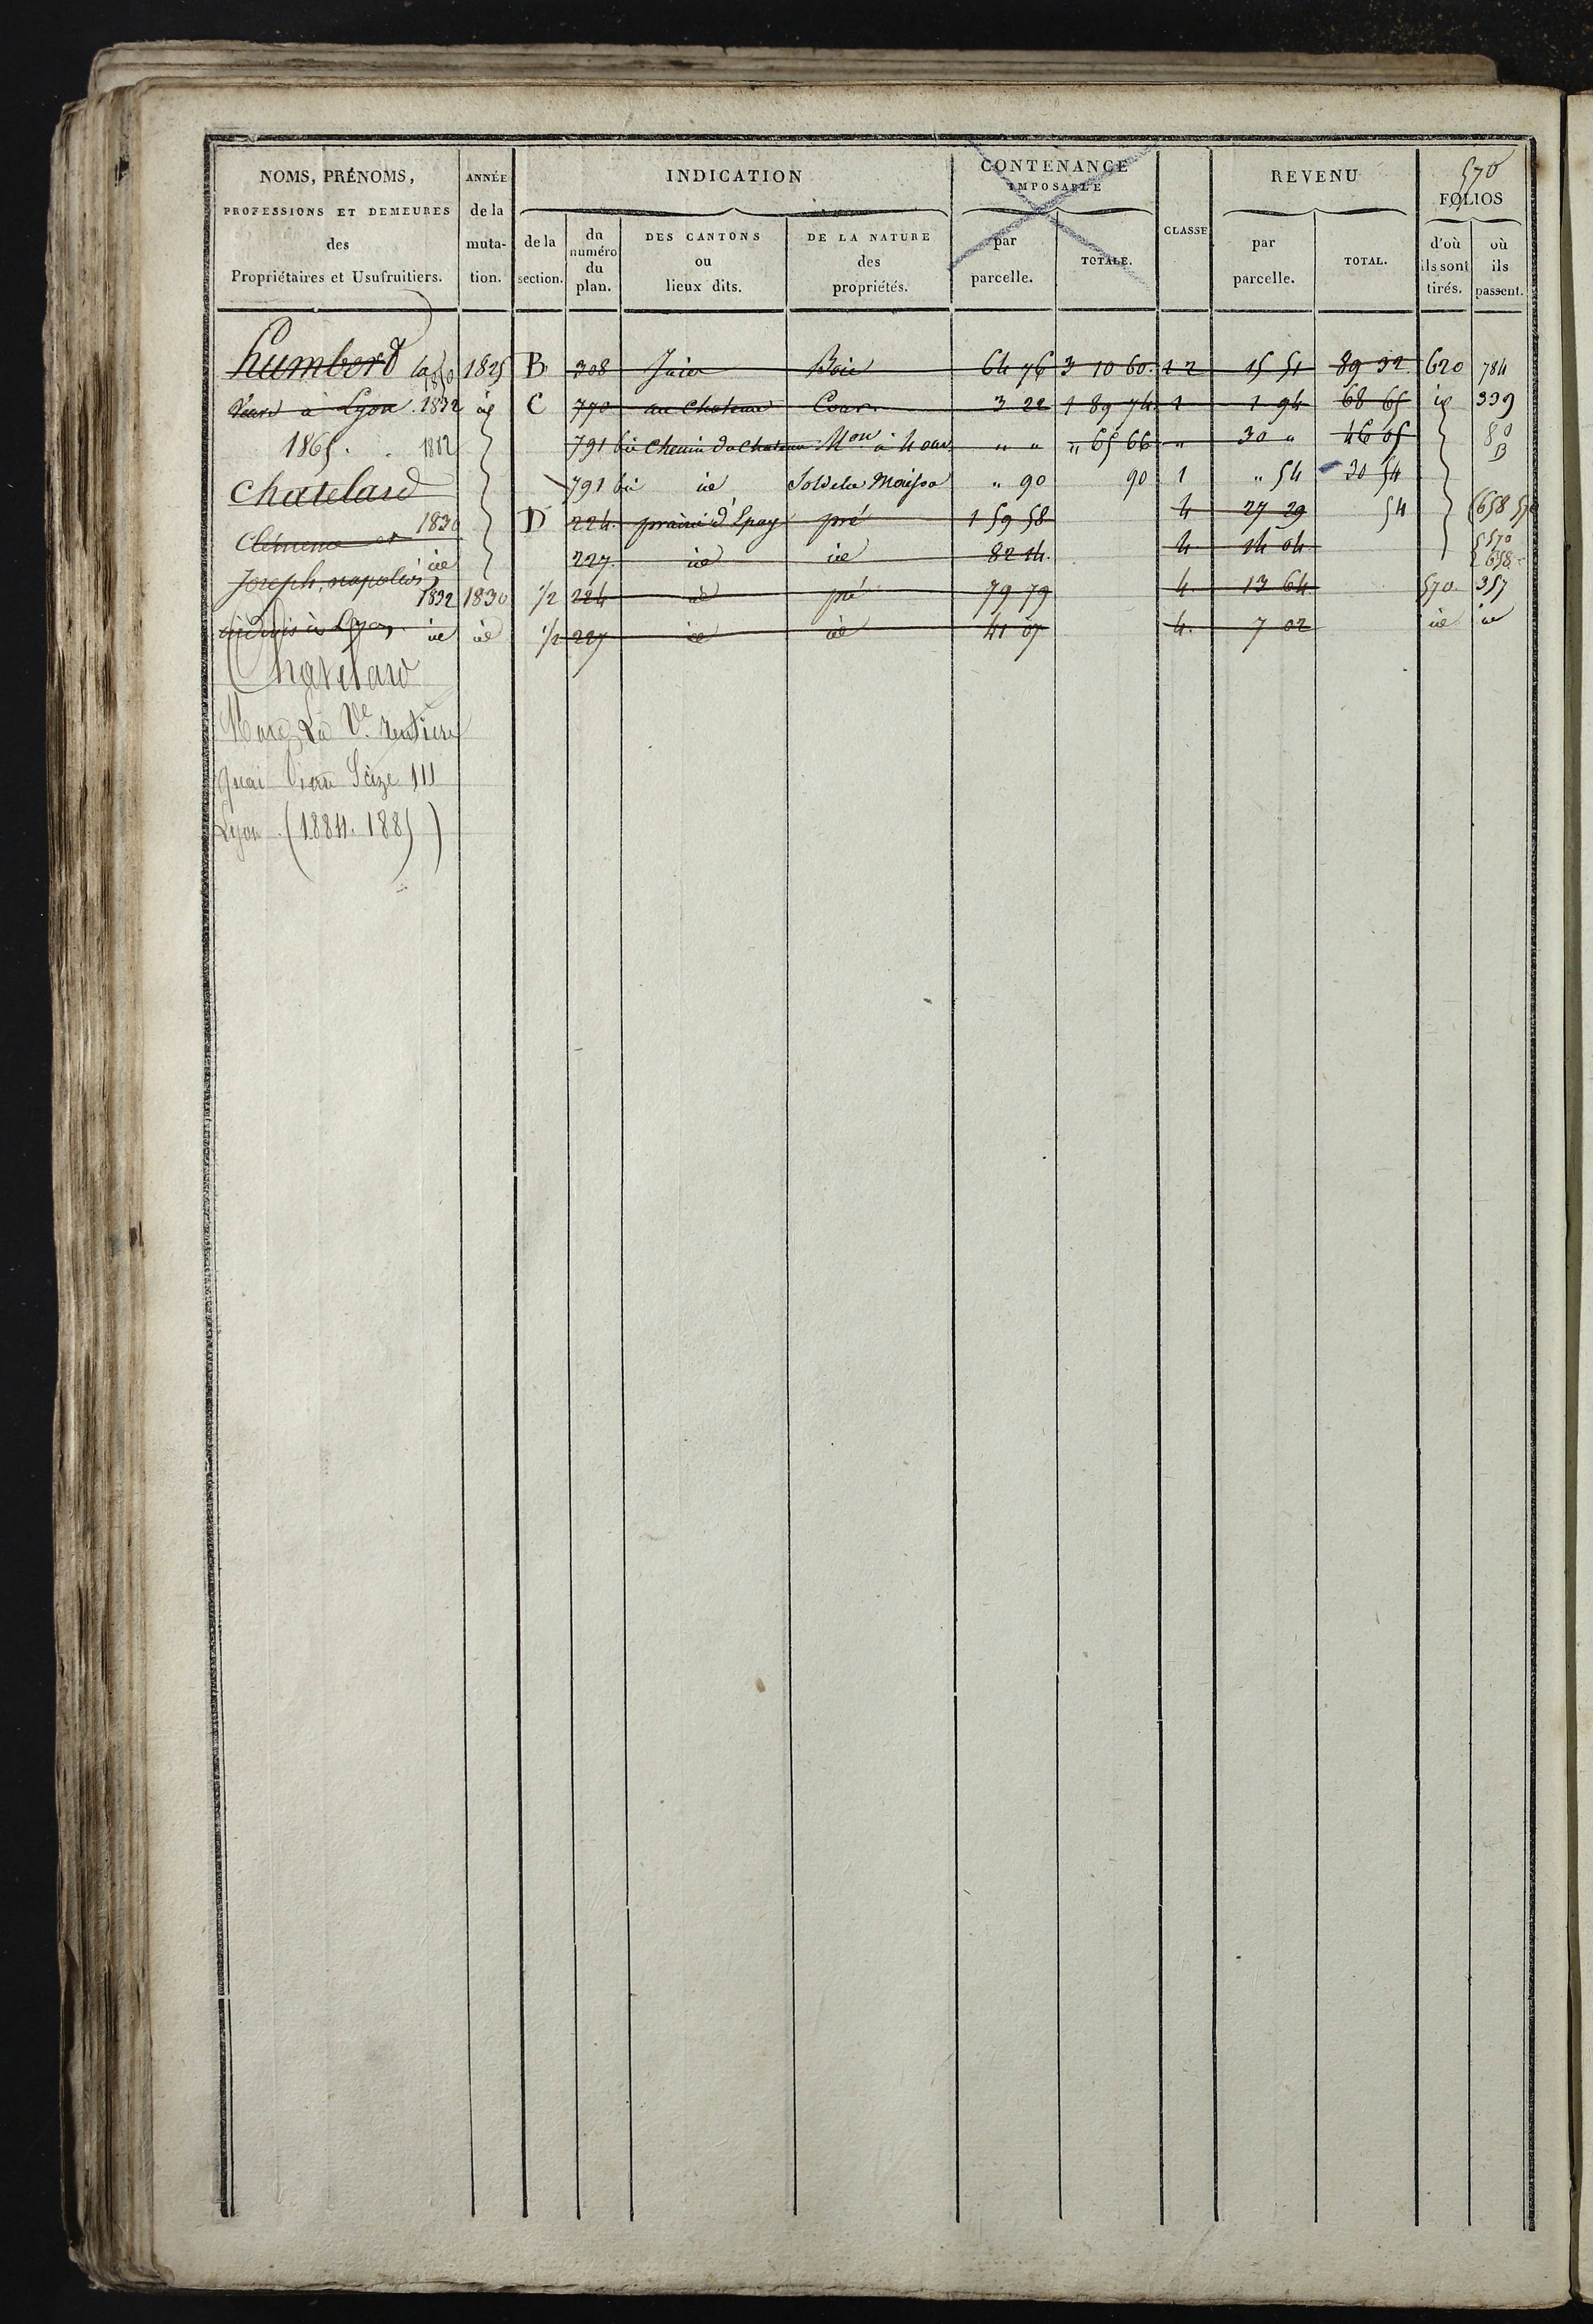 570
NOMS, PRÉNOMS, ANNÉE INDICATION CONTENANCE REVENU FOLIOS
PROFESSIONS ET DEMEURES de la IMPOSABLE
des muta- de la du numéro du plan. DES CANTONS ou lieux dits. DE LA NATURE des propriétés. par parcelle. TOTALE. CLASSE par parcelle. TOTAL. d'où ils sont tirés. où ils passent.
Propriétaires et Usufruitiers. tion. section.
humberd la 1850 1825 B 308 Bois 64 76 3 10 60 12 15 51 89 32 620 784
à Lyon 1832 id C 770 au Chateau Cour 3 22 1 89 74 1 1 94 68 65 id 339
1865. 1882 791 bis Chemin du Chateau Mon à 4 ouv " " " 65 66 " 30 " 46 65 80
B
Chatelard 791 bis id Sol de la Maison " 90 90 1 " 54 30 54
Clémence et 1830 D 224 prairie d'Epay pré 1 59 58 4 27 29 54 658 570
id 227 id id 82 14 4 14 04 570 658
Joseph, napoléon 1832 1830 1/2 224 id pré 79 79 4 13 64 570 357
à Lyon id id 1/2 227 id id 41 07 4 7 02 id id
Chatelard
Marc, La Ve rentière
Quai Pierre Scize 111
Lyon (1884. 1885)